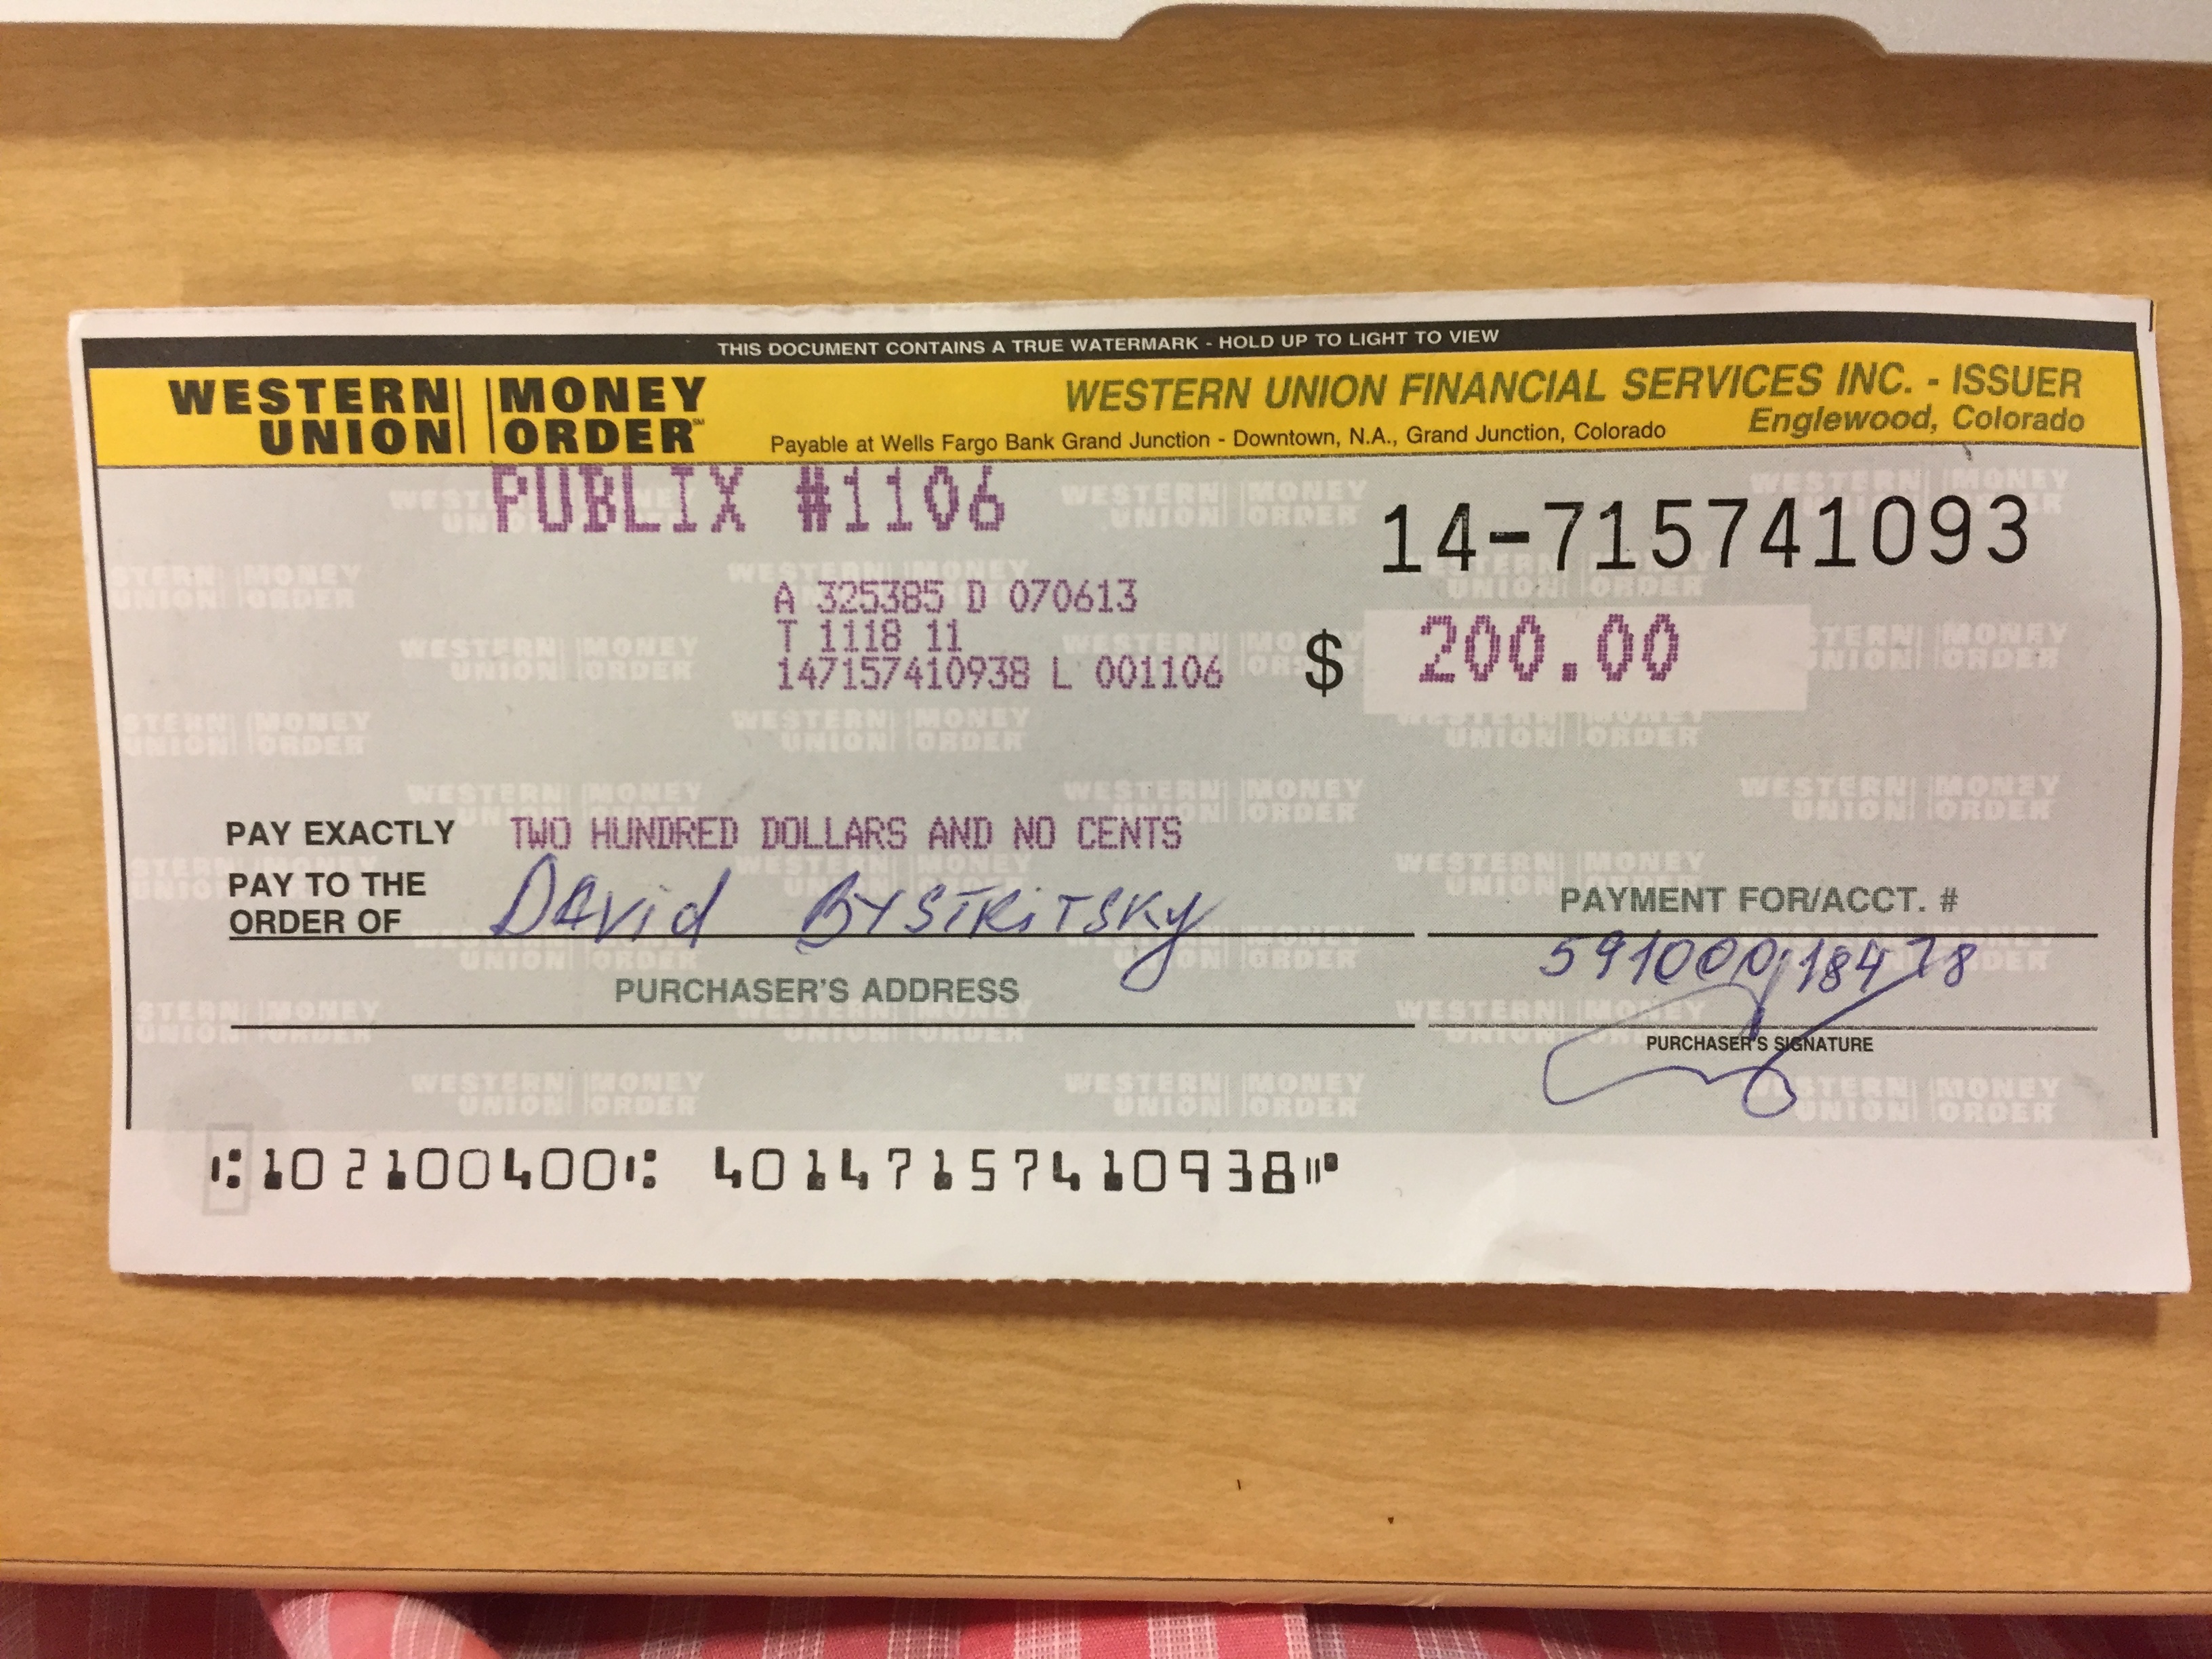 THIS DOCUMENT CONTAINS A TRUE WATERMARK - HOLD UP TO LIGHT TO VIEW
WESTERN UNION MONEY ORDER℠
WESTERN UNION FINANCIAL SERVICES INC. - ISSUER
Englewood, Colorado
Payable at Wells Fargo Bank Grand Junction - Downtown, N.A., Grand Junction, Colorado
PUBLIX #1106
14-715741093
A 325385 D 070613
T 1118 11
147157410938 L 001106
$ 200.00
PAY EXACTLY TWO HUNDRED DOLLARS AND NO CENTS
PAY TO THE ORDER OF David BYSTRiTSKy
PAYMENT FOR/ACCT. #
591000118478
PURCHASER'S ADDRESS
PURCHASER'S SIGNATURE
⑆102100400⑆ 40147157410938⑈